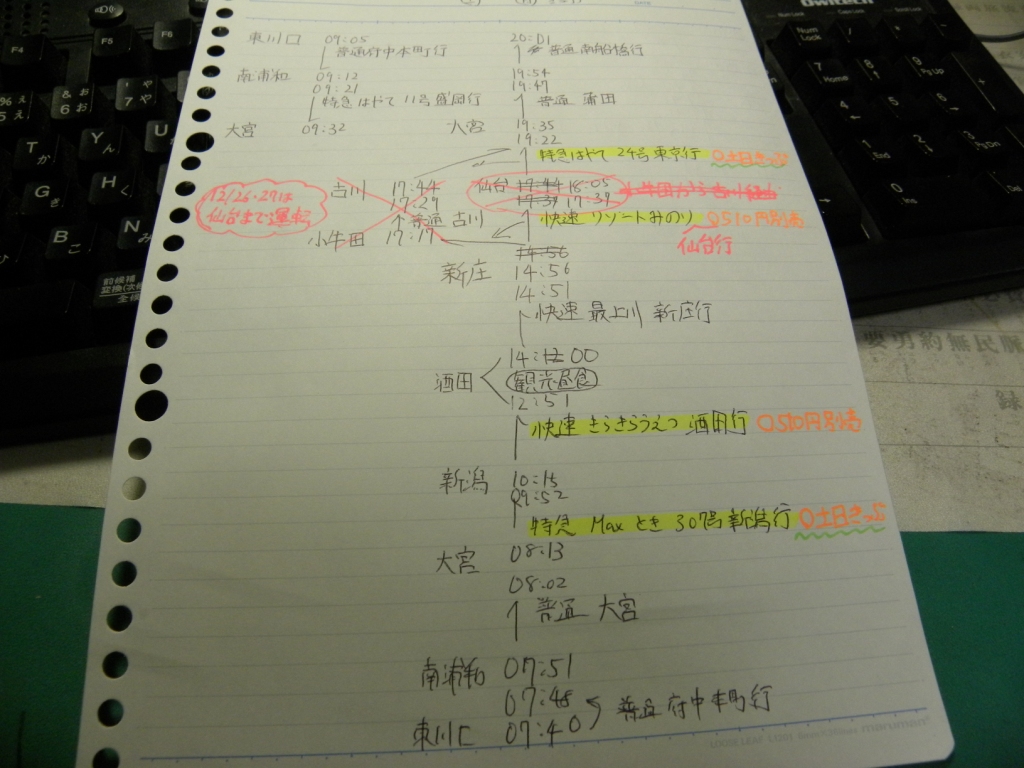 東川口 09:05
普通府中本町行
南浦和 09:12
09:21
特急はやて 11号 盛岡行
大宮 09:32
20:01
普通 南船橋行
19:54
19:47
普通 蒲田
大宮 19:35
19:22
特急はやて 24号 東京行 〇土日きっぷ
12/26・27は
仙台まで運転
古川 17:44
17:29
普通 古川
小牛田 17:17
仙台 17:44 18:05
17:39
快速 リゾートみのり 〇510円別席
仙台行
14:56
新庄 14:56
14:51
快速 最上川 新庄行
14:12 00
酒田 観光昼食
12:51
快速 きらきらうえつ 酒田行
新潟 10:15
09:52
特急 Maxとき 307号 新潟行 〇土日きっぷ
大宮 08:13
08:02
普通 大宮
南浦和 07:51
07:48
普通 府中本町行
東川口 07:40
maruman
Owltech
Num Lock
7 Home
8
9 PgUp
4
5
6
1 End
2
3 PgDn
0 Ins
Del
F4
F5
F6
T か
Y ん
U な
G き
H く
B こ
N み
前候補
変換(次候補)
全候補